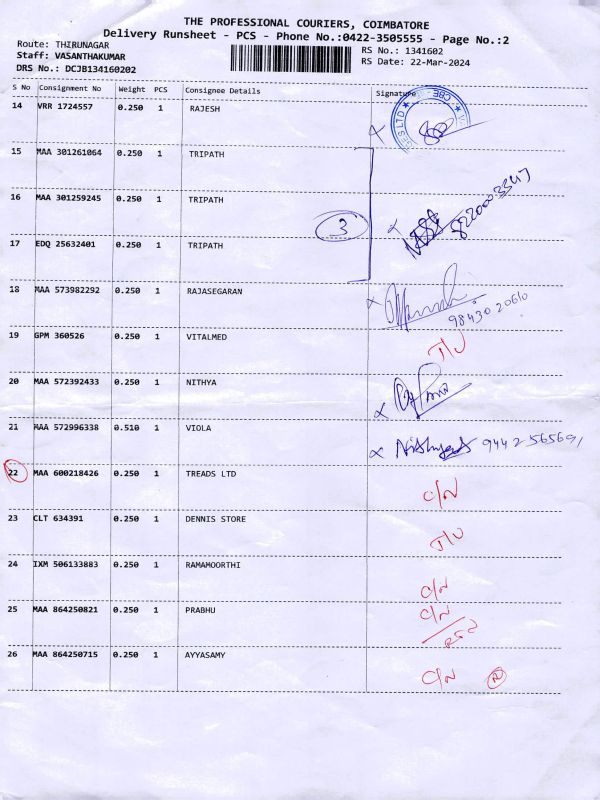 THE PROFESSIONAL COURIERS, COIMBATORE
Delivery Runsheet - PCS - Phone No.:0422-3505555 - Page No.:2
Route: THIRUNAGAR
Staff: VASANTHAKUMAR
DRS No.: DCJB134160202
RS No.: 1341602
RS Date: 22-Mar-2024
S No Consignment No Weight PCS Consignee Details Signature
14 VRR 1724557 0.250 1 RAJESH
15 MAA 301261064 0.250 1 TRIPATH
16 MAA 301259245 0.250 1 TRIPATH
3
17 EDQ 25632401 0.250 1 TRIPATH
18 MAA 573982292 0.250 1 RAJASEGARAN
98430 20610
19 GPM 360526 0.250 1 VITALMED
20 MAA 572392433 0.250 1 NITHYA
21 MAA 572996338 0.510 1 VIOLA
22 MAA 600218426 0.250 1 TREADS LTD C/N
23 CLT 634391 0.250 1 DENNIS STORE
24 IXM 506133883 0.250 1 RAMAMOORTHI C/N
25 MAA 864250821 0.250 1 PRABHU C/N
26 MAA 864250715 0.250 1 AYYASAMY C/N